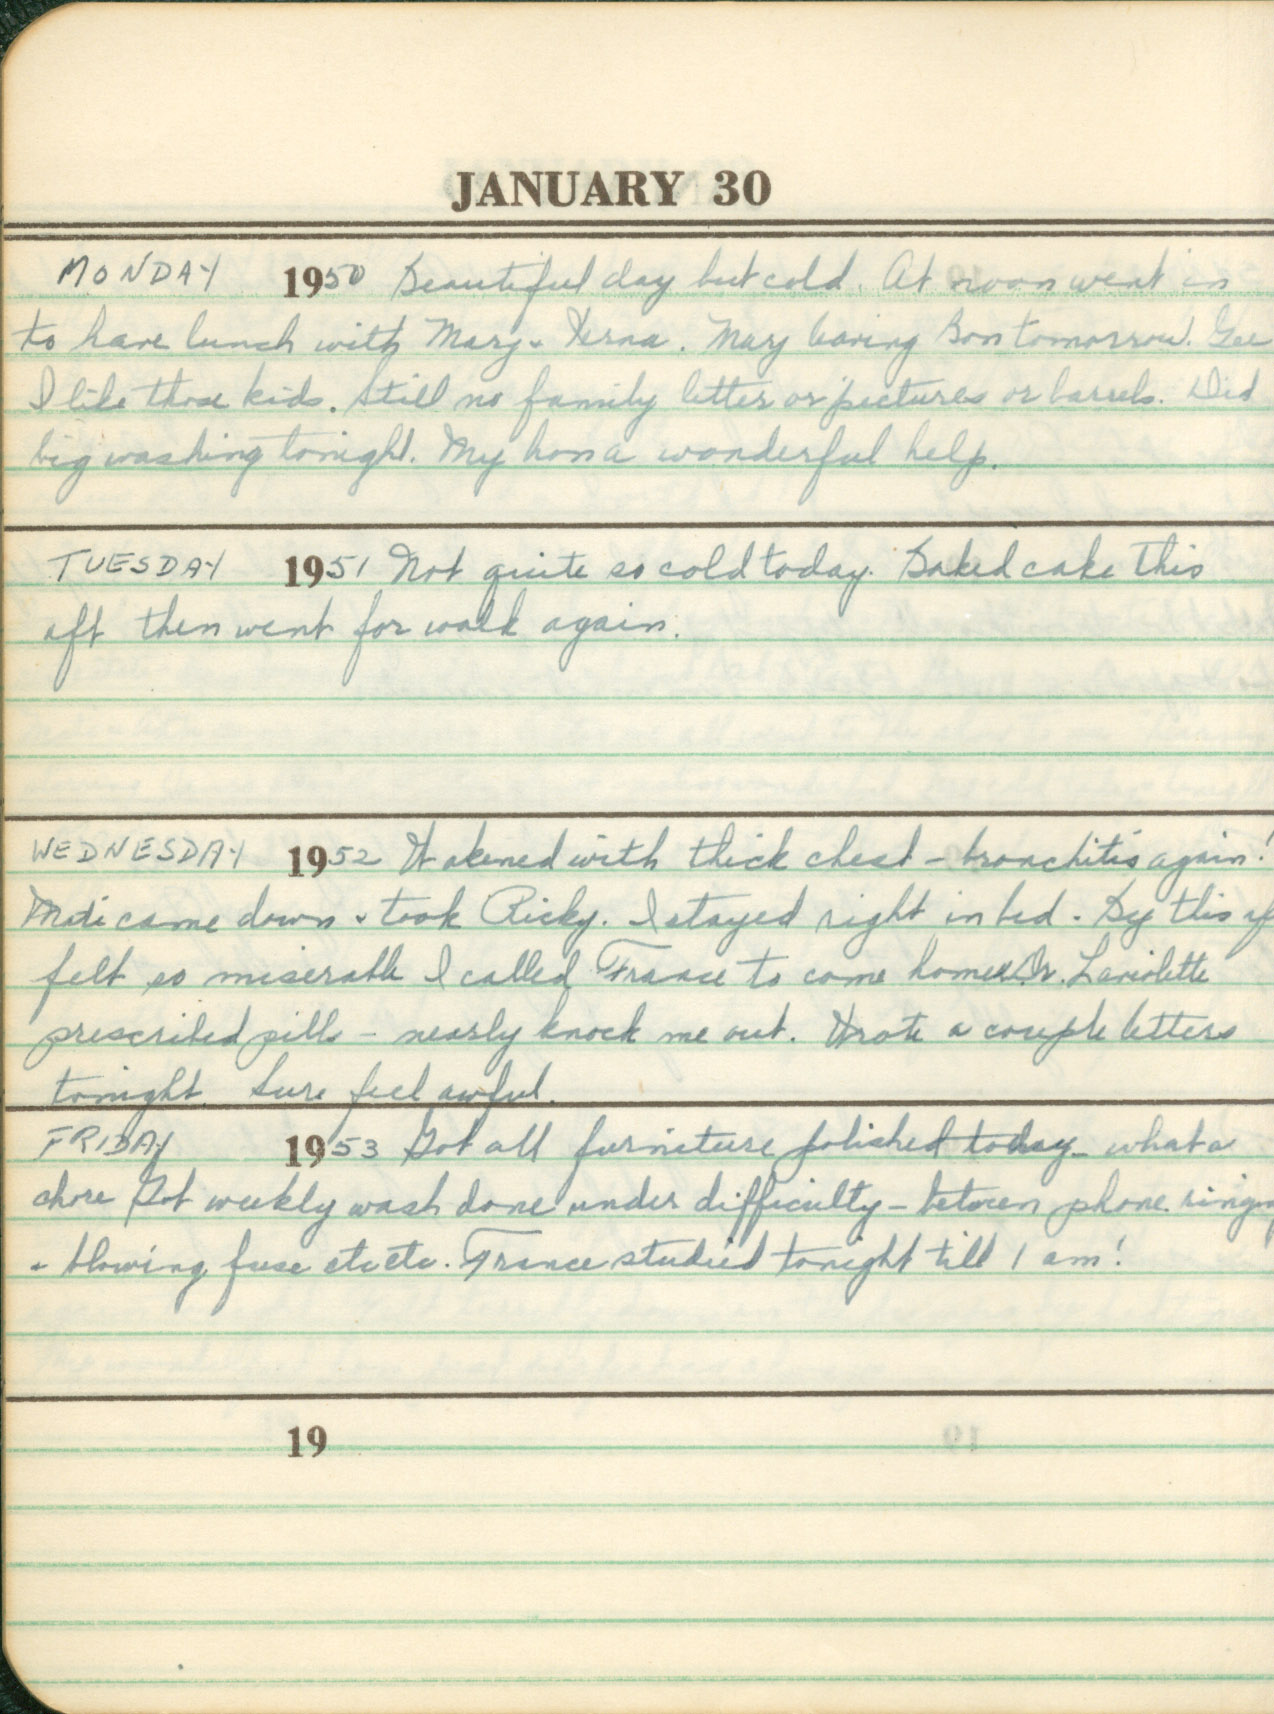 JANUARY 30
MONDAY 1950 Beautiful day but cold. At noon went in
to have lunch with Mary & Verna. Mary having Son tomorrow. Gee
I like those kids. Still no family letter or pictures or barrels. Did
big washing tonight. My hon a wonderful help.
TUESDAY 1951 Not quite so cold today. Baked cake this
aft then went for walk again.
WEDNESDAY 1952 Wakened with thick chest - bronchitis again!
came down & took Ricky. I stayed right in bed. By this af
felt so miserable I called France to come home. Dr. Laviolette
prescribed pills - nearly knock me out. Wrote a couple letters
tonight. Sure feel awful.
FRIDAY 1953 Got all furniture polished today - what a
chore Got weekly wash done under difficulty - between phone ringing
& blowing fuse etc etc. France studied tonight till 1 am!
19